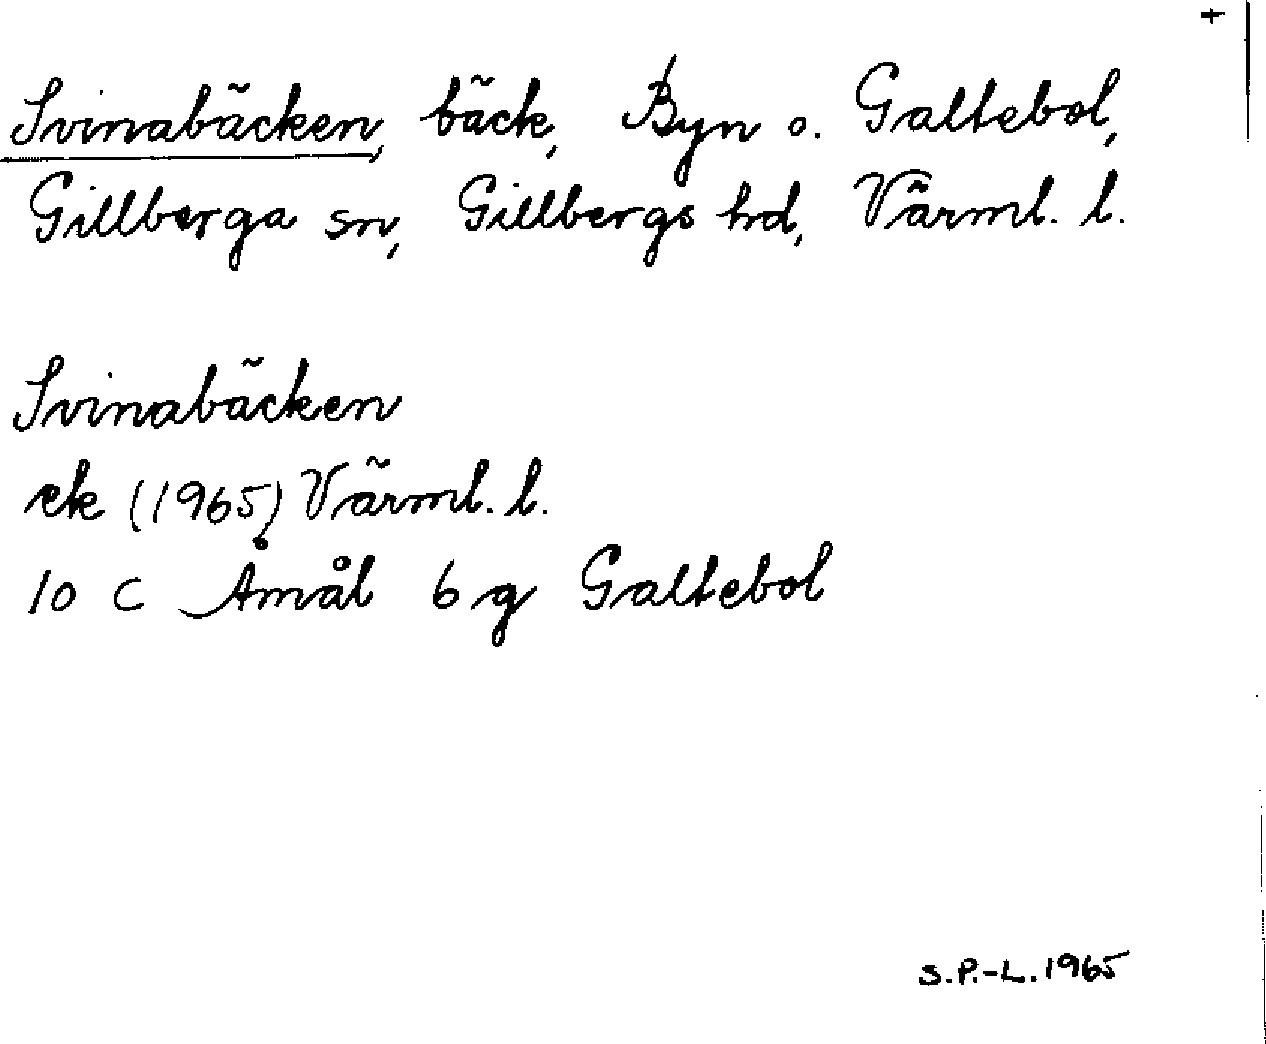 +
Svinabäcken, bäck, Byn o. Galtebol,
Gillberga sn, Gillbergs hd, Värml. l.
Svinabäcken
ek (1965) Värml. l.
10 C Åmål 6 g Galtebol
S.P.-L. 1965